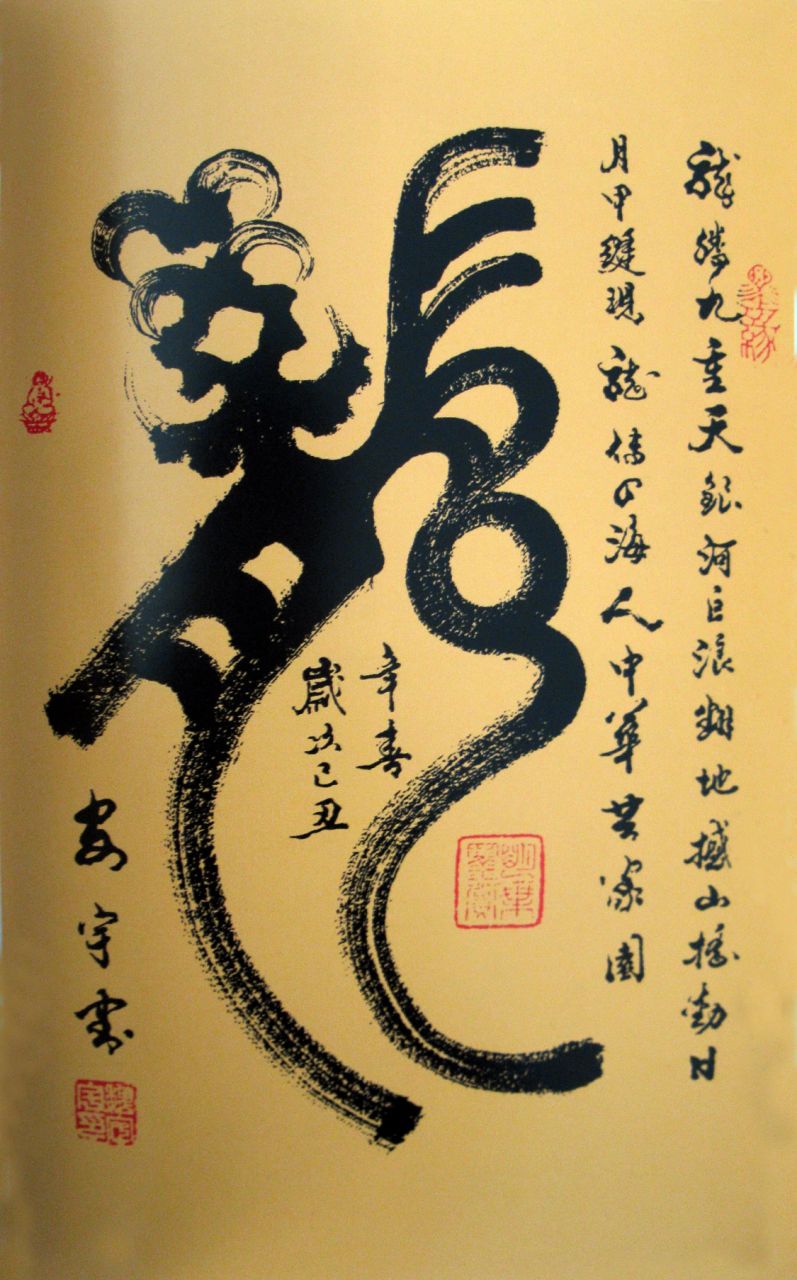 龍騰九重天銀河巨浪翻地撼山搖動日
月甲縫現龍傳四海人中華共家園
龍
歲次己丑
宇書